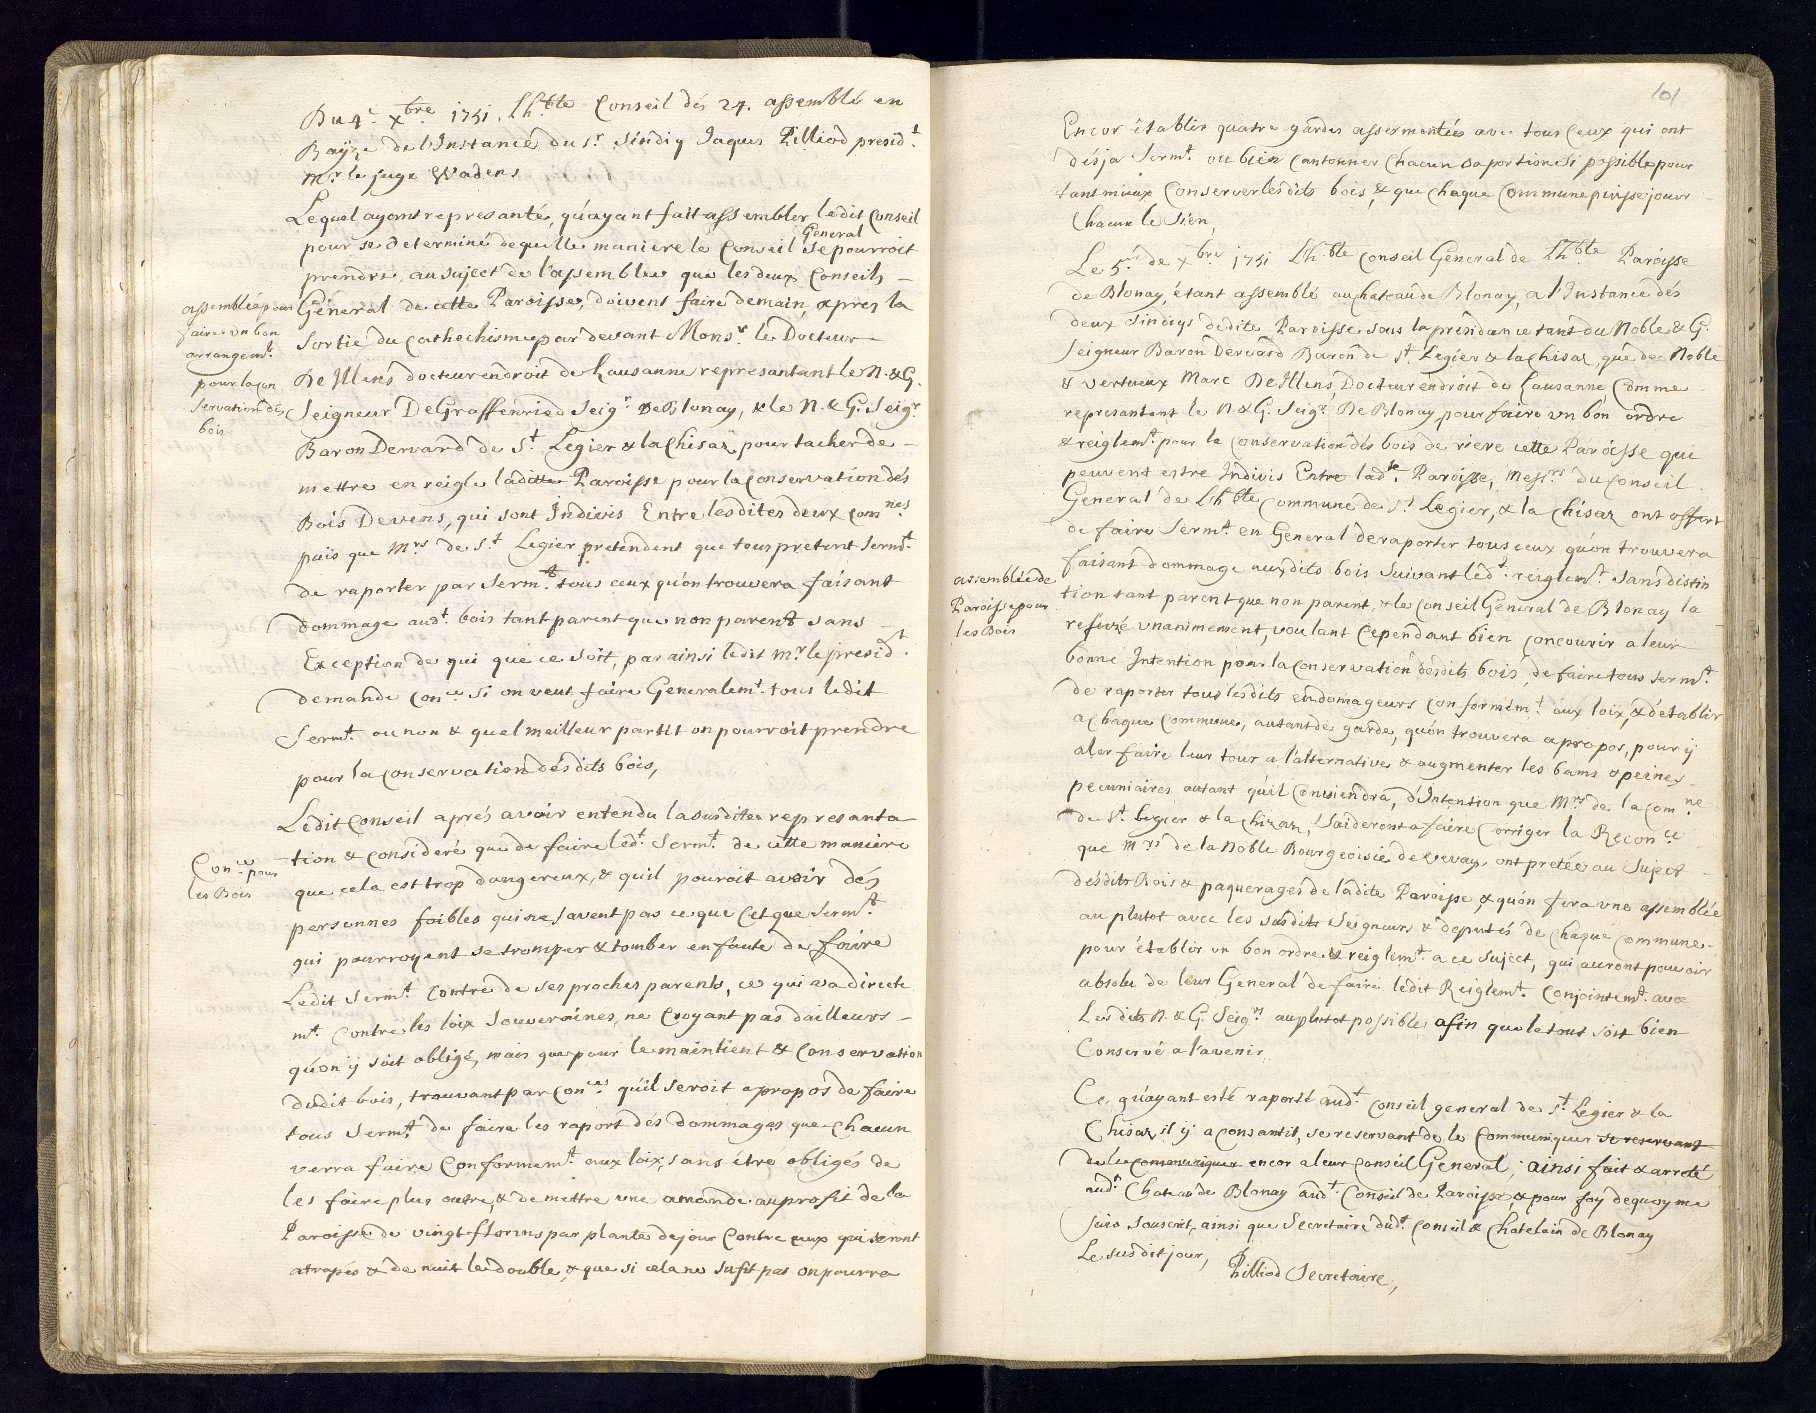 Du 4.e xbre 1751. Lh.ble Conseil dés 24. assemblé en
Bayze de l'Instance du s.r Sindiq Jaques Pilliod presid.t
M.r le juge Wadens
Lequel ayant represanté, qu'ayant fait assembler ledit Conseil
pour se determiné de quelle maniere le Conseil General se pourroit
prendre, au suject de l'assemblee que les deux Conseils
General de cette Paroisse, doivent faire demain, apres la
Sortie du Cathechisme par devant Mons.r le Docteur
De Illens docteur en droit de Lausanne represantant le N. & G.
Seigneur De Graffenried Seig.r De Blonay, & le N. & G. Seig.r
Baron Dervard de S.t Legier & la Chisaz, pour tacher de
mettre en reigle laditte Paroisse pour la Conservation dés
Bois Devens, qui sont Indivis Entre lesdites deux Com.nes
puis que M.rs de S.t Legier pretendent que tous pretent Serm.t
de raporter par Serm.t tous ceux qu'on trouvera faisant
dommage aud.t bois tant parent que non parent sans
Exception de qui que ce soit, par ainsi ledit M.r le presid.t
demande Con.ce si on veut faire Generalem.t tous ledit
Serm.t ou non & quel meilleur partit on pourroit prendre
pour la Conservation désdits bois,
Ledit Conseil aprés avoir entendu la susdittee represanta
tion & consideré que de faire led.t Serm.t de cette maniere
que cela est trop dangereux, & qu'il pouroit avoir dés
personnes foibles qui ne savent pas ce que C'et que Serm.t
qui pourroyent se tromper & tomber en faute de faire
Ledit Serm.t Contre de ses proches parents, ce qui va directe
m.t Contre les loix Souveraines, ne Croyant pas dailleurs
qu'on ij soit obligé, mais que pour le maintient & Conservation
dudit bois, trouvant par Con.ce qu'il seroit a propos de faire
tous Serm.t de faire les raport dés dommages que Chacun
verra faire Conformem.t aux loix, sans étre obligés de
les faire plus outre, & de mettre une amande au profit de la
Paroisse de vingt florins par plante de jour Contre ceux qui seront
atrapés & de nuit le double, & que si cela ne sufit pas on pourra
assemblée pour
faire un bon
arrangem.t
pour la con
servation dés
bois
Con.ce pour
les Bois
101
Encor établir quatre gardes assermentées avec tous Ceux qui ont
désja Serm.t ou bien Cantonner Chacun sa portion Si possible pour
tant mieux Conserver lesdits bois, & que Chaque Commune puisse jouir
Chacun le Sien,
Le 5.e de xbre 1751 Lh.ble Conseil Géneral de Lh.ble Paroisse
de Blonay, étant assemblé au chateau de Blonay, a l'Instance dés
deux Sindiqs dedite Paroisse sous la présidance tant du Noble & G.
Seigneur Baron Dervard Baron de S.t Legier & la Chisaz, que de Noble
& Vertueux Marc De Illens, Docteur en droit de Lausanne Comme
represantant le N. & G. Seig.r De Blonay, pour faire un bon ordre
& reiglem.t pour la Conservation dés bois de riere cette Paroisse que
peuvent estre Indivis Entre lad.te Paroisse, Mess.rs du Conseil
General de Lh.ble Commune de S.t Legier, & la Chisaz ont offert
de faire Serm.t en General de raporter tous ceux qu'on trouvera
faisant dommage auxdits bois Suivant led.t reiglem.t sans distin
tion tant parent que non parent, & le Conseil General de Blonay la
refuzé unanimement, voulant Cependant bien Concourir a leur
bonne Intention pour la Conservation désdits bois, de faire tous Serm.t
de raporter tous lesdits endomageurs Conformém.t aux loix, & d'établir
a Chaque Commune, autant de garde, qu'on trouvera a propos, pour ij
aler faire leur tour a l'alternative & augmenter les bams & peines
pecuniaires autant qu'il Conviendra, d'Intention que M.rs de la Com.ne
de S.t Legier & la Chisaz, s'aideront a faire Corriger la Recon.ce
que M.rs de la Noble Bourgeoisie de vevay ont pretée au Suject
désdits Bois & paquerages de ladite Paroisse, & qu'on fera une assemblée
au plutot avec les susdits Seigneurs & deputés de Chaque Commune
pour établir un bon ordre & reiglem.t a ce Suject, qui auront pouvoir
absolu de leur General de faire ledit Reiglem.t Conjointem.t avec
Lesdits N. & G. Seig.rs au plutot possible afin que le tout soit bien
Conservé a l'avenir.
Ce qu'ayant esté raporté aud.t Conseil general de S.t Legier & la
Chisaz il ij a consantit, se reservant de le Communiquer se reservant
de le communiquer encor a leur Conseil General; ainsi fait & arreté
aud.t Chateau de Blonay aud.t Conseil de Paroisse, & pour foy dequoy me
suis souscrit, ainsi que Secretaire dud.t Conseil & Chatelain de Blonay
Le susdit jour,
Pilliod Secretaire,
assemblée de
Paroisse pour
les Bois